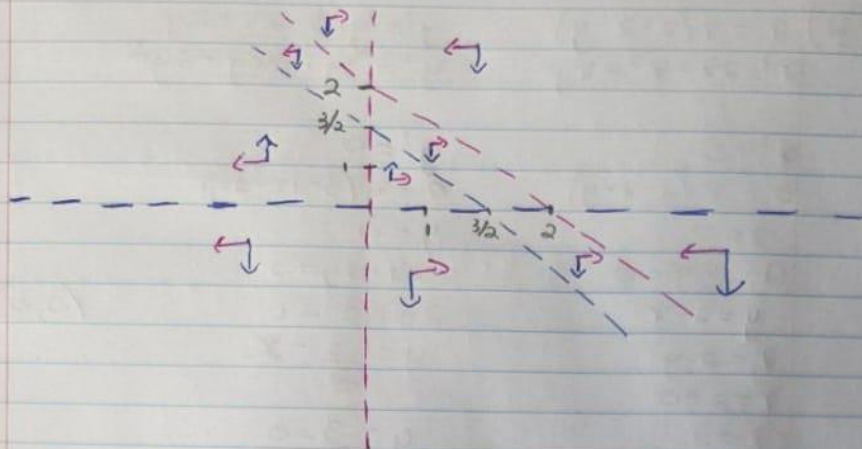 2
3/2
1
1
3/2
2